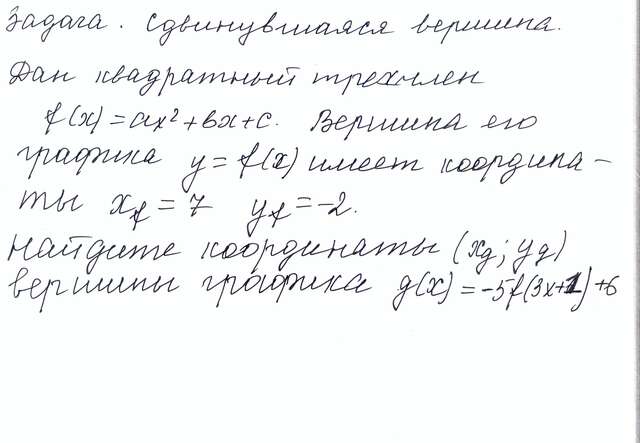 Задача. Сдвинувшаяся вершина.
Дан квадратный трехчлен
f(x) = ax² + bx + c. Вершина его
графика y = f(x) имеет координа-
ты x_f = 7 y_f = -2.
Найдите координаты (x_g; y_g)
вершины графика g(x) = -5f(3x+1)+6